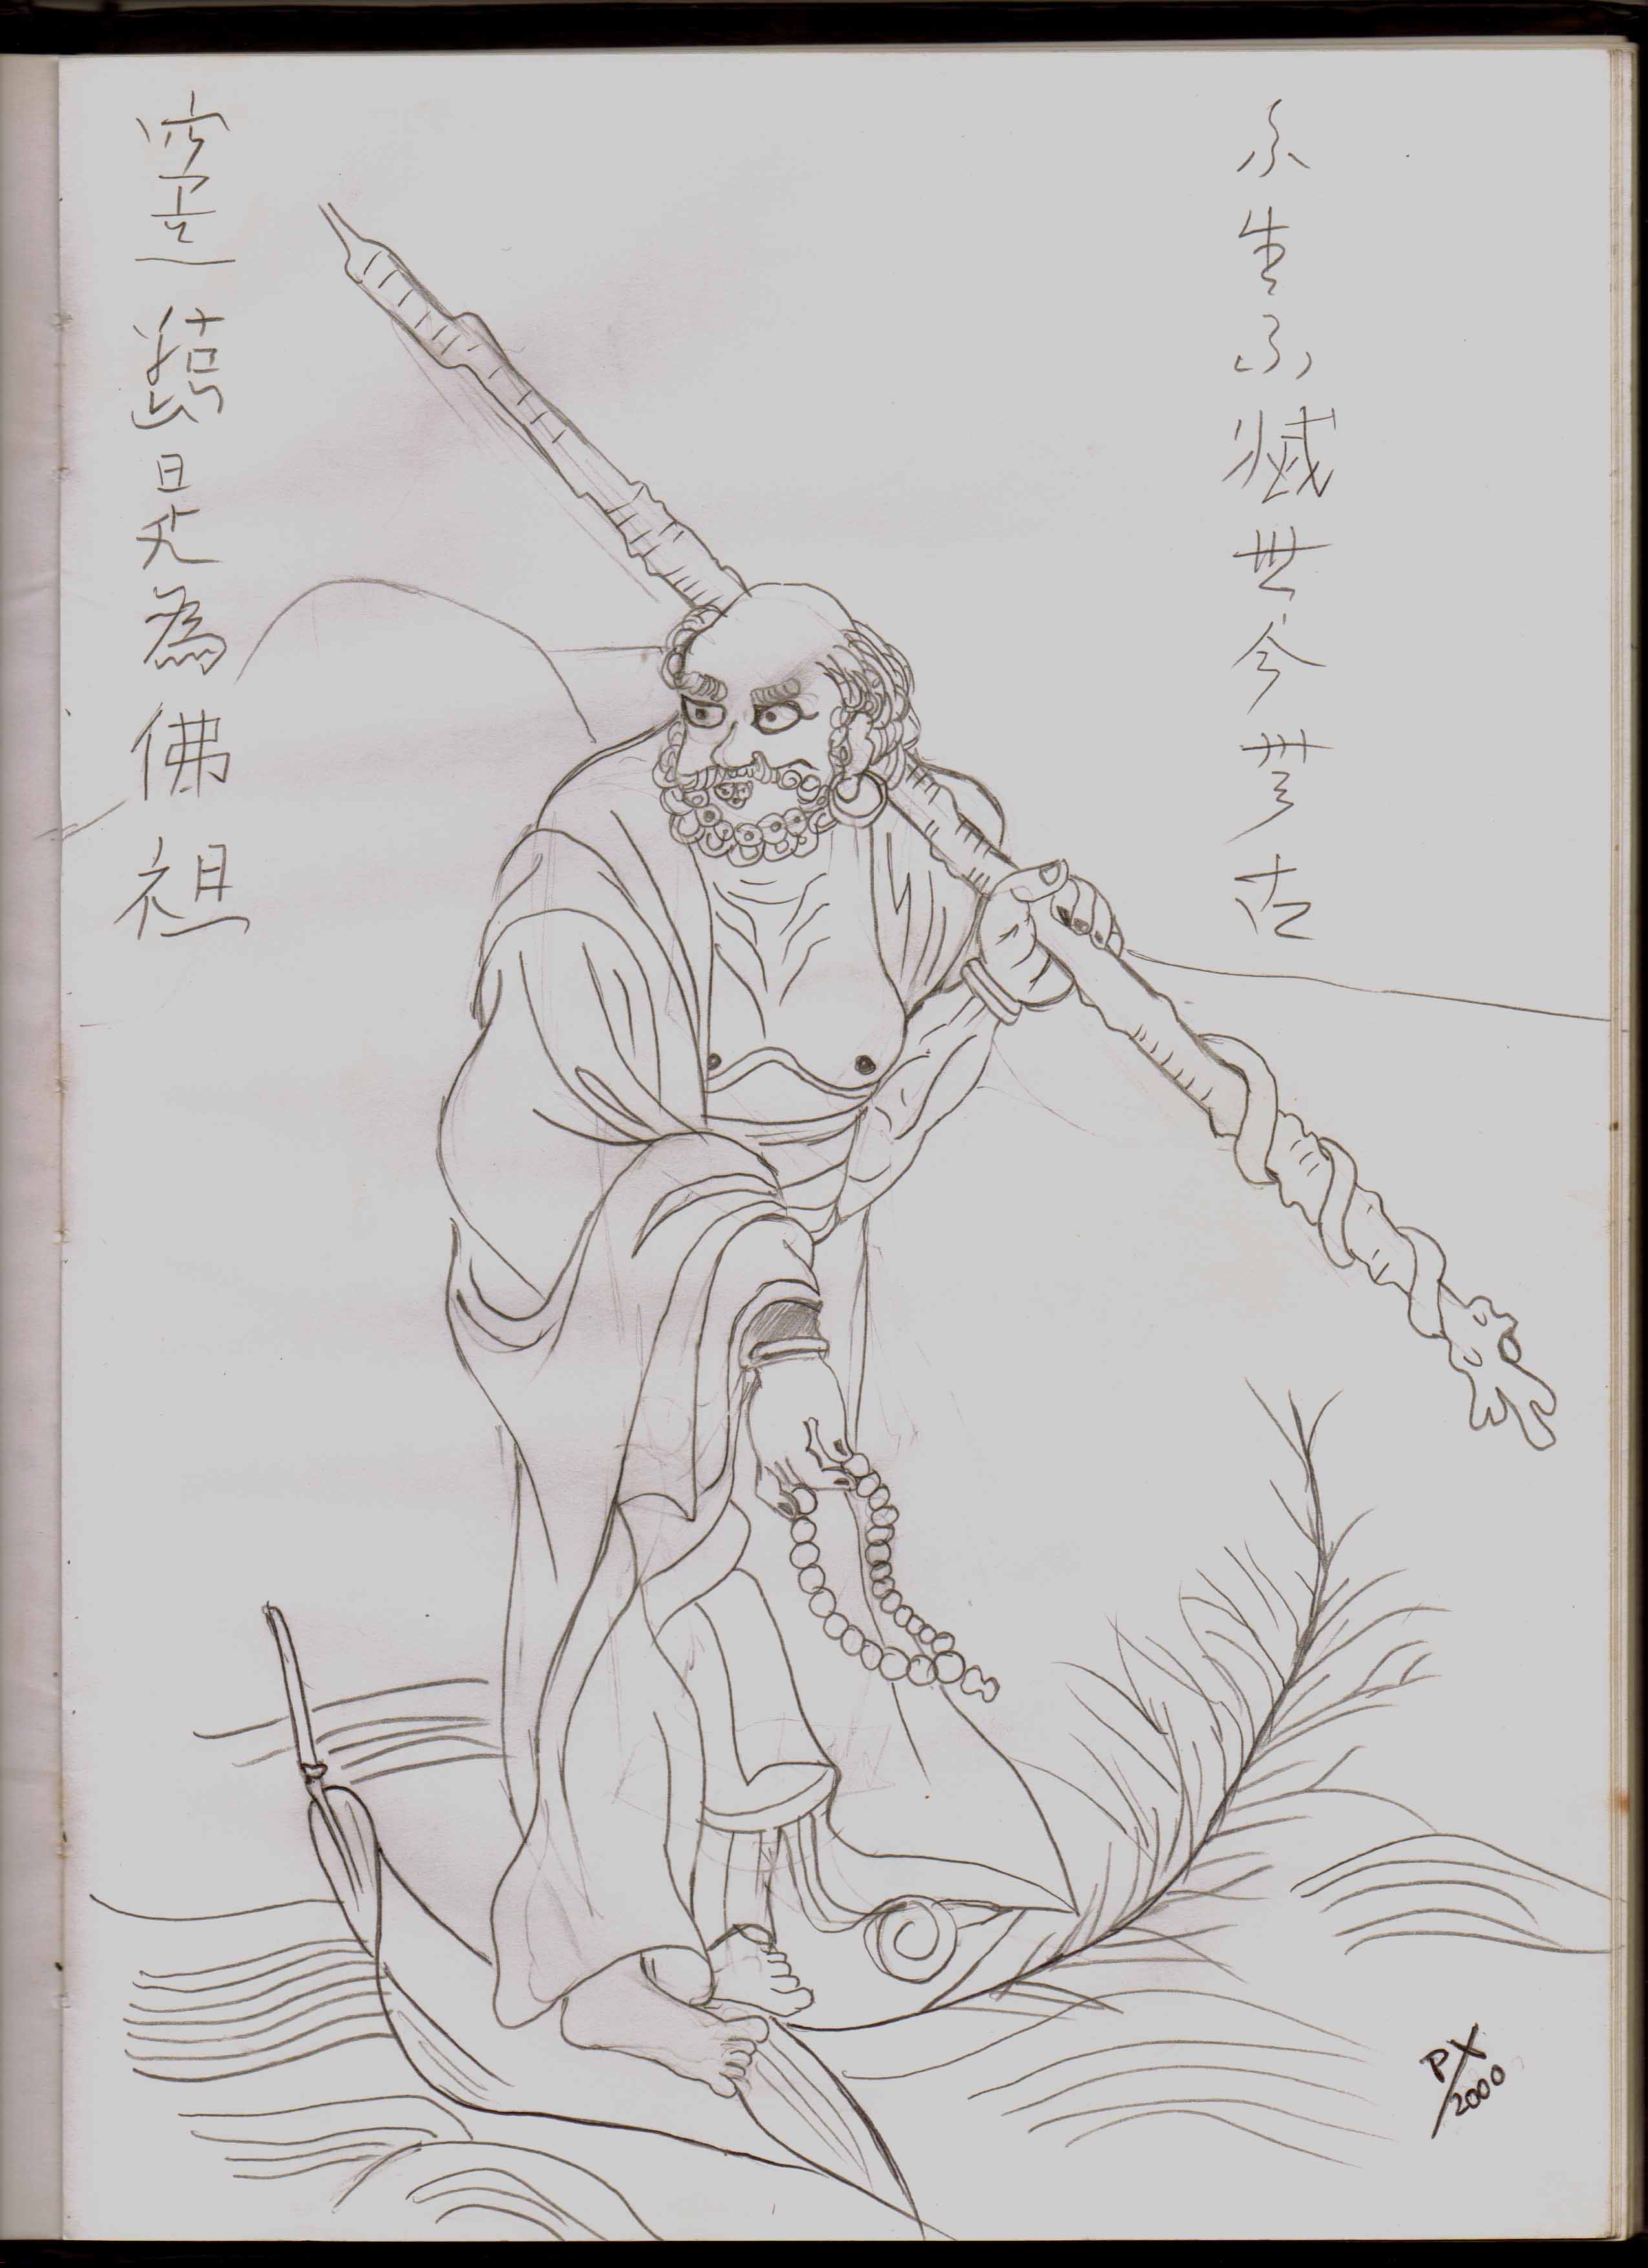 不生不滅世今無古
是為佛祖
PX
2000